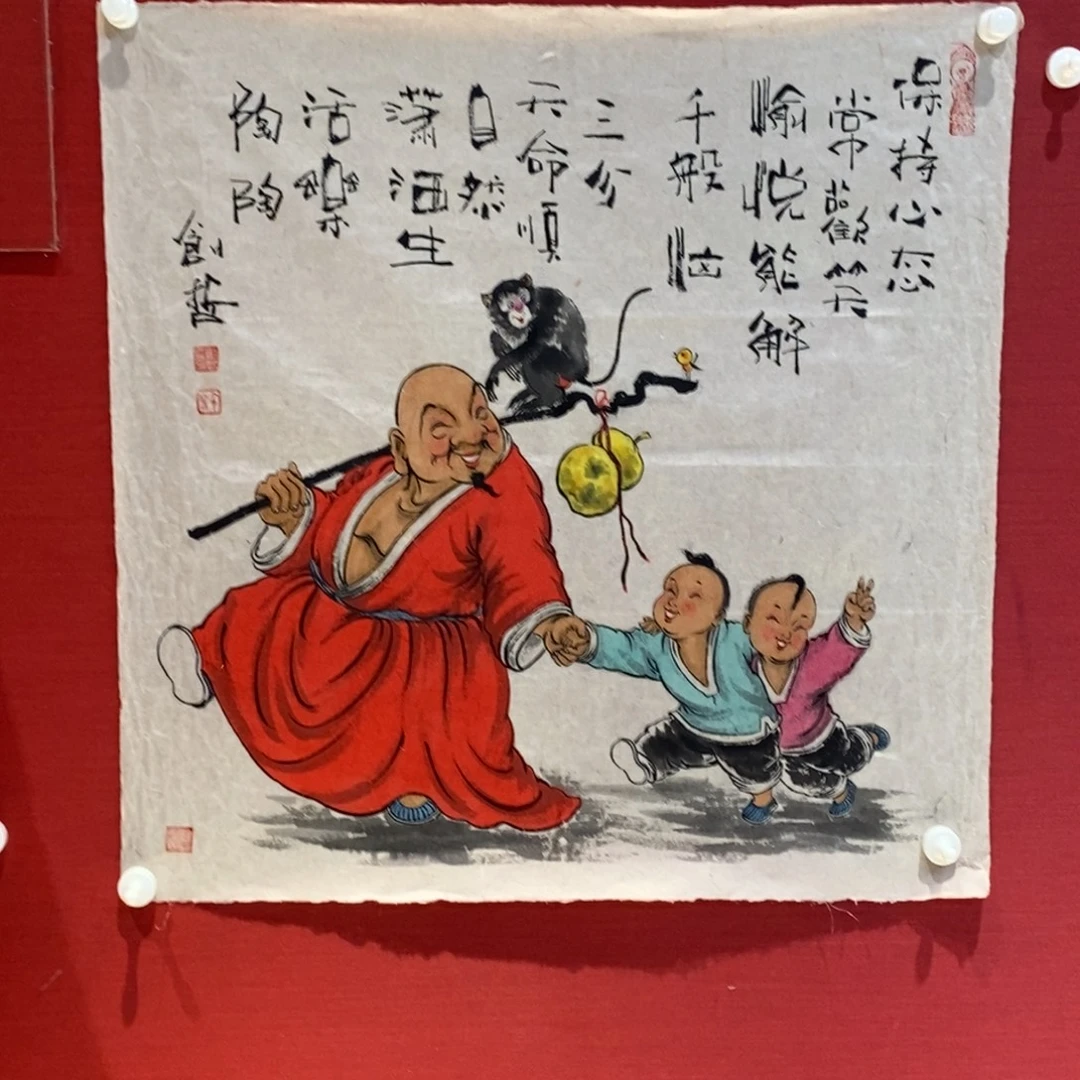 保持心态
常歡笑
愉悅能解
千般恼
三分
天命順
自然
潇洒生
活樂
陶陶
創哲